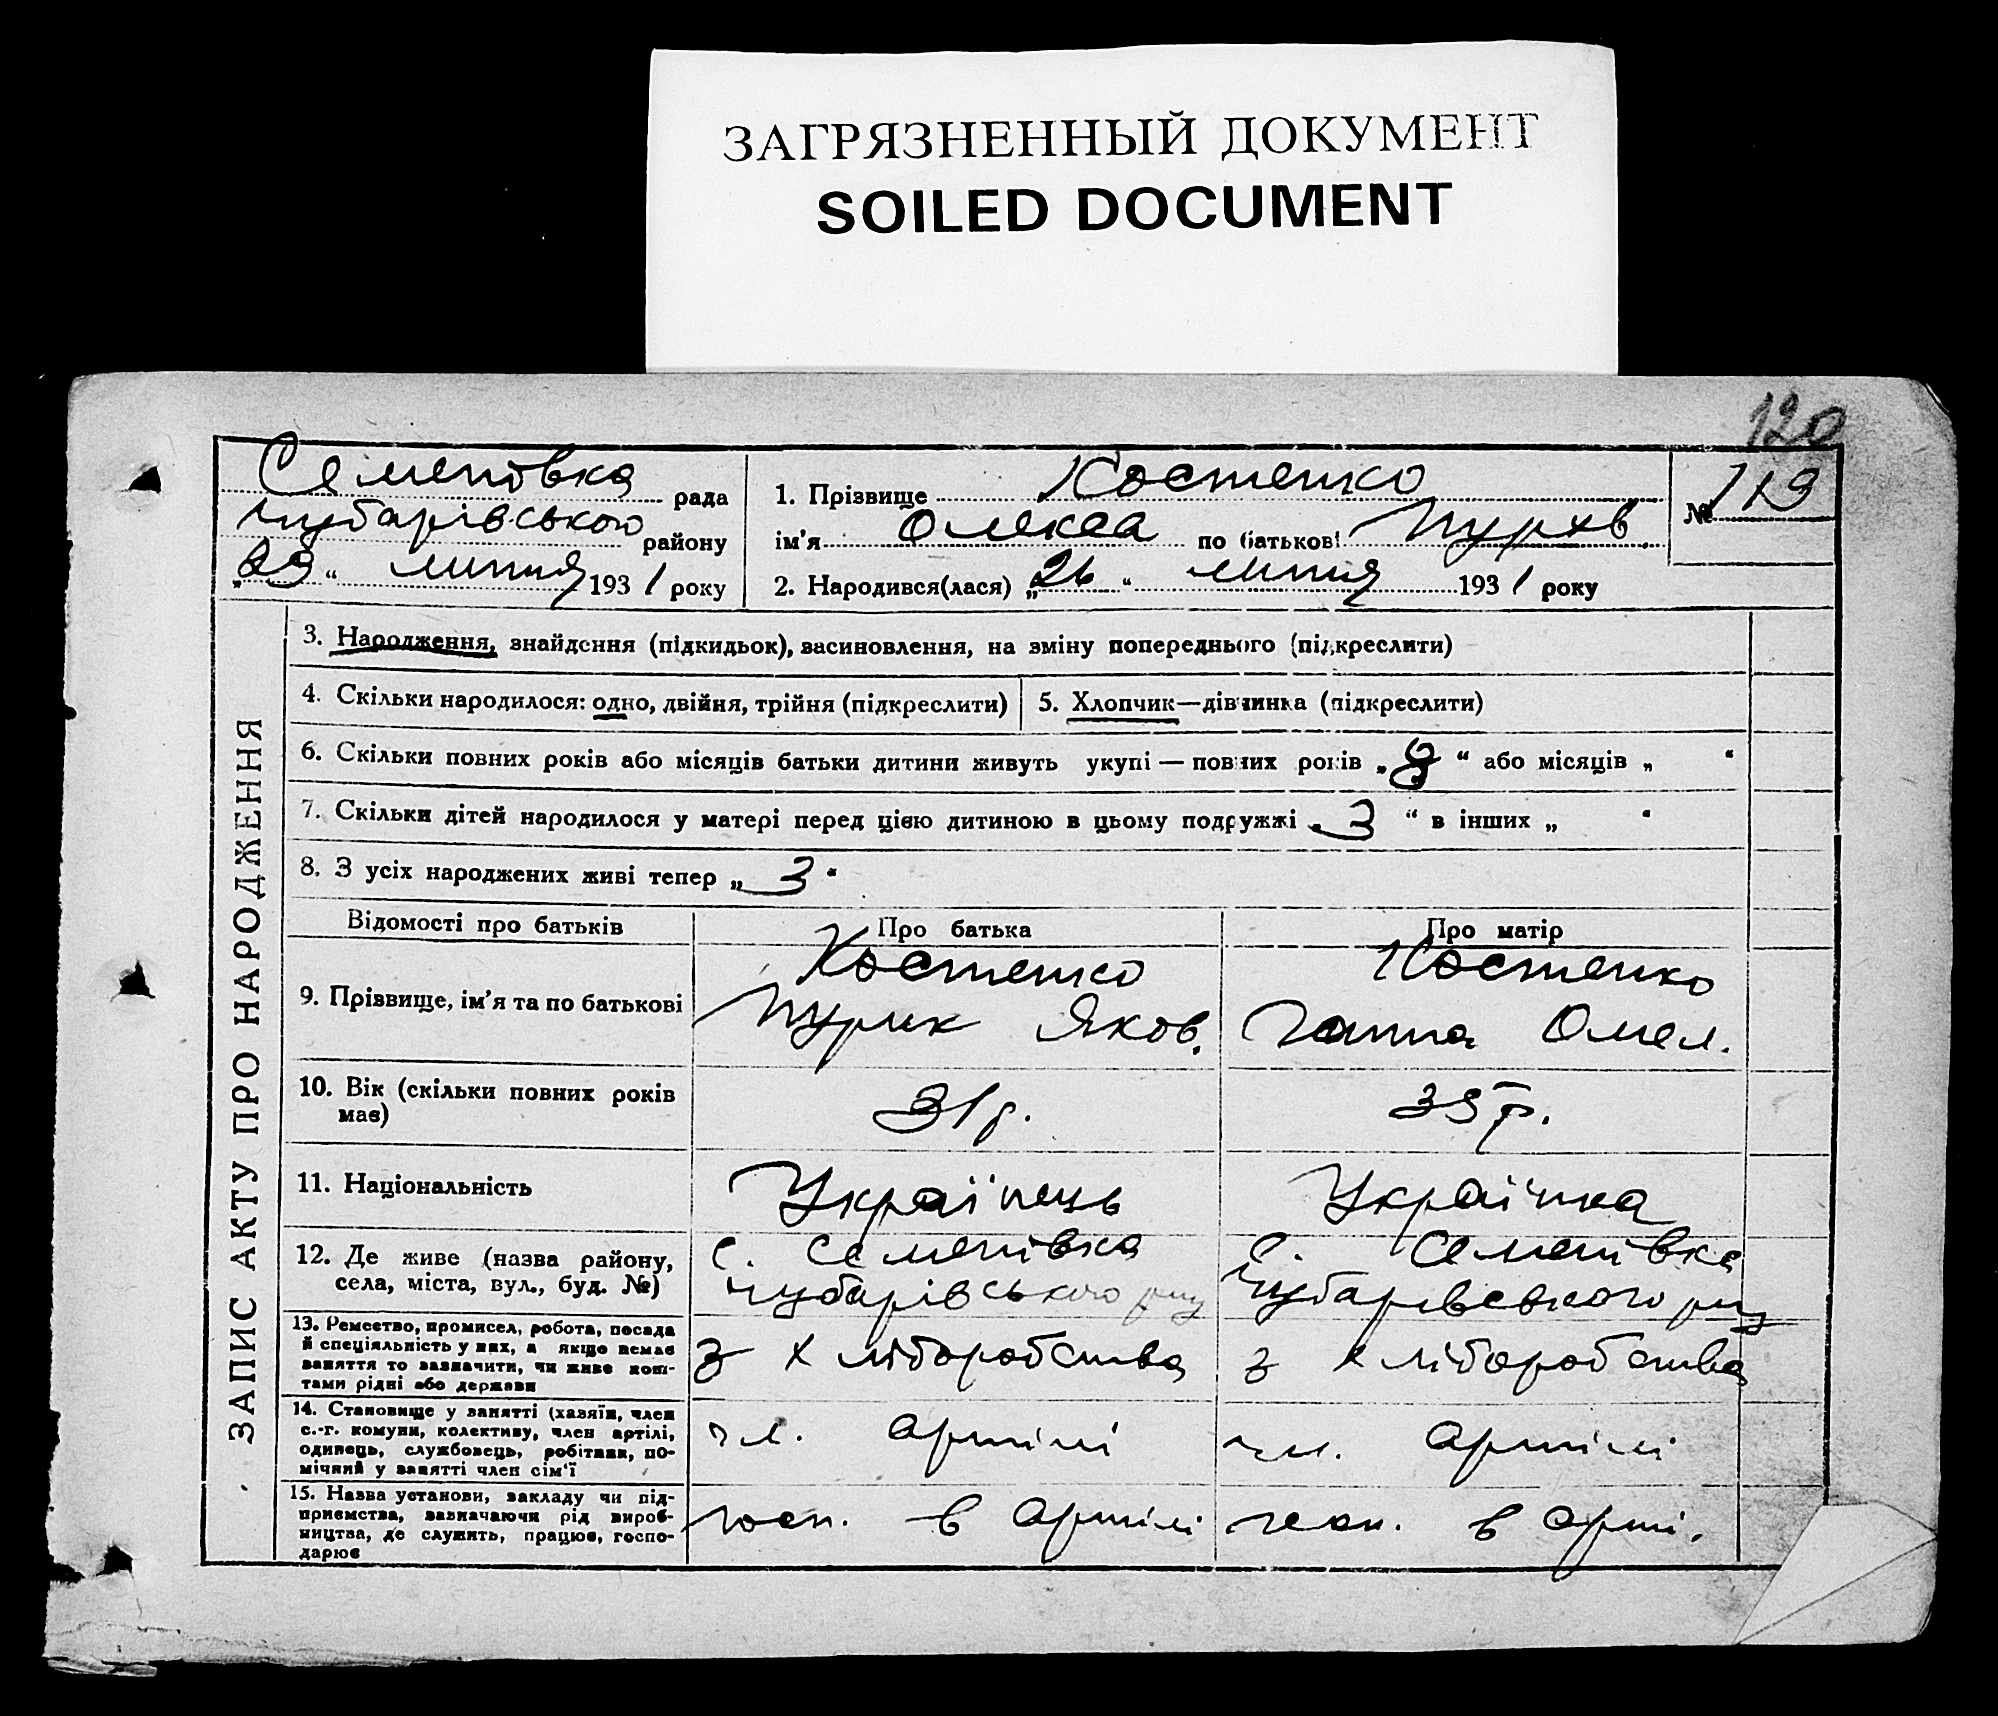 ЗАГРЯЗНЕННЫЙ ДОКУМЕНТ
SOILED DOCUMENT
120
Семенівка рада
Чубарівського району
„29“ липня 1931 року
1. Прізвище Костенко
ім'я Олекса по батькові
2. Народився(лася) „26“ липня 1931 року
№ 119
ЗАПИС АКТУ ПРО НАРОДЖЕННЯ
3. Народження, знайдення (підкидьок), васиновлення, на зміну попереднього (підкреслити)
4. Скільки народилося: одно, двійня, трійня (підкреслити)
5. Хлопчик—дівчинка (підкреслити)
6. Скільки повних років або місяців батьки дитини живуть укупі — повних років „ “ або місяців „ “
7. Скільки дітей народилося у матері перед цією дитиною в цьому подружжі „3“ в інших „ “
8. З усіх народжених живі тепер „3“
Відомості про батьків Про батька Про матір
9. Прізвище, ім'я та по батькові
Костенко
Яков.
Костенко
Ганна Омел.
10. Вік (скільки повних років
має)
31 р.
35 р.
11. Національність
Українець
Українка
12. Де живе (назва району,
села, міста, вул., буд. №)
с. Семенівка
Чубарівського р-ну
с. Семенівка
Чубарівського р-ну
13. Ремество, промисел, робота, посада
й спеціяльність у них, а якщо немає
заняття то зазначити, чи живе кош-
тами рідні або держави
з хліборобства
з хліборобства
14. Становище у занятті (хазяїн, член
с.-г. комуни, колективу, член артілі,
одинець, службовець, робітник, по-
мічний у занятті член сім'ї
чл. артілі
чл. артілі
15. Назва установи, закладу чи під-
приємства, зазначаючи рід вироб-
ництва, де служить, працює, госпо-
дарює
госп. в артілі
госп. в арті.